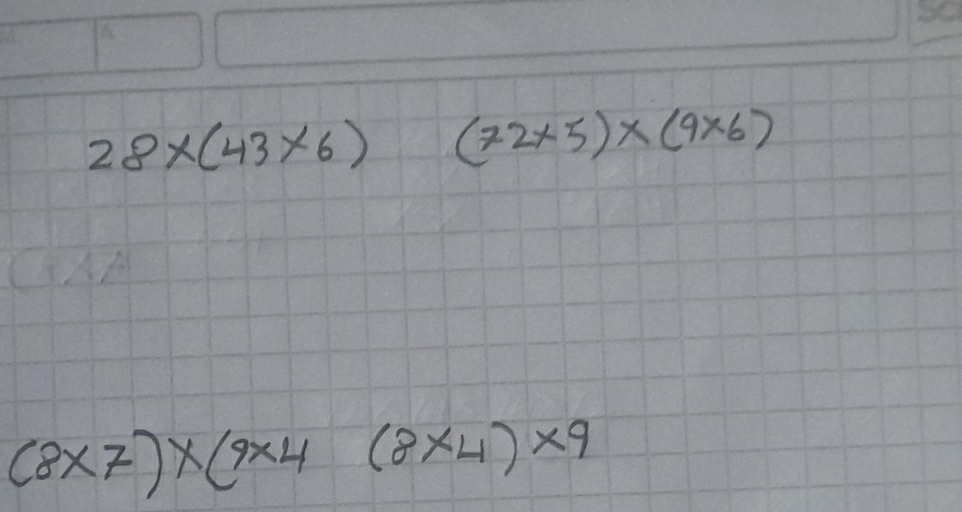 28×(43×6) (72×5)×(9×6)
(8×7)×(9×4 (8×4)×9